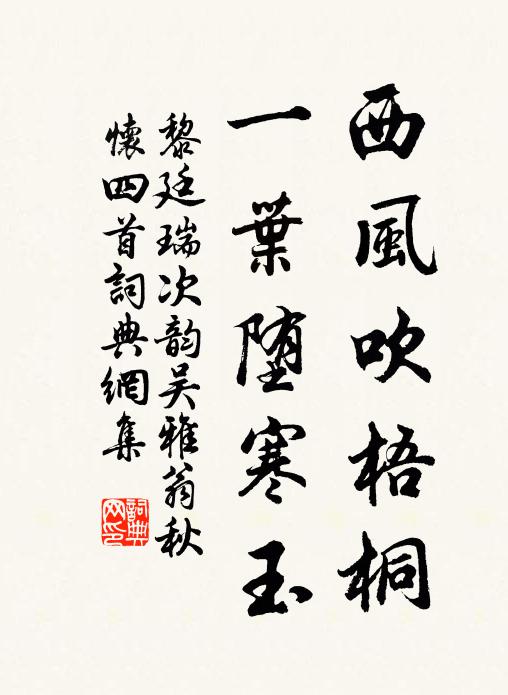 西風吹梧桐
一葉堕寒玉
黎廷瑞次韵吴雅翁秋
懷四首詞典網集
詞典
网印